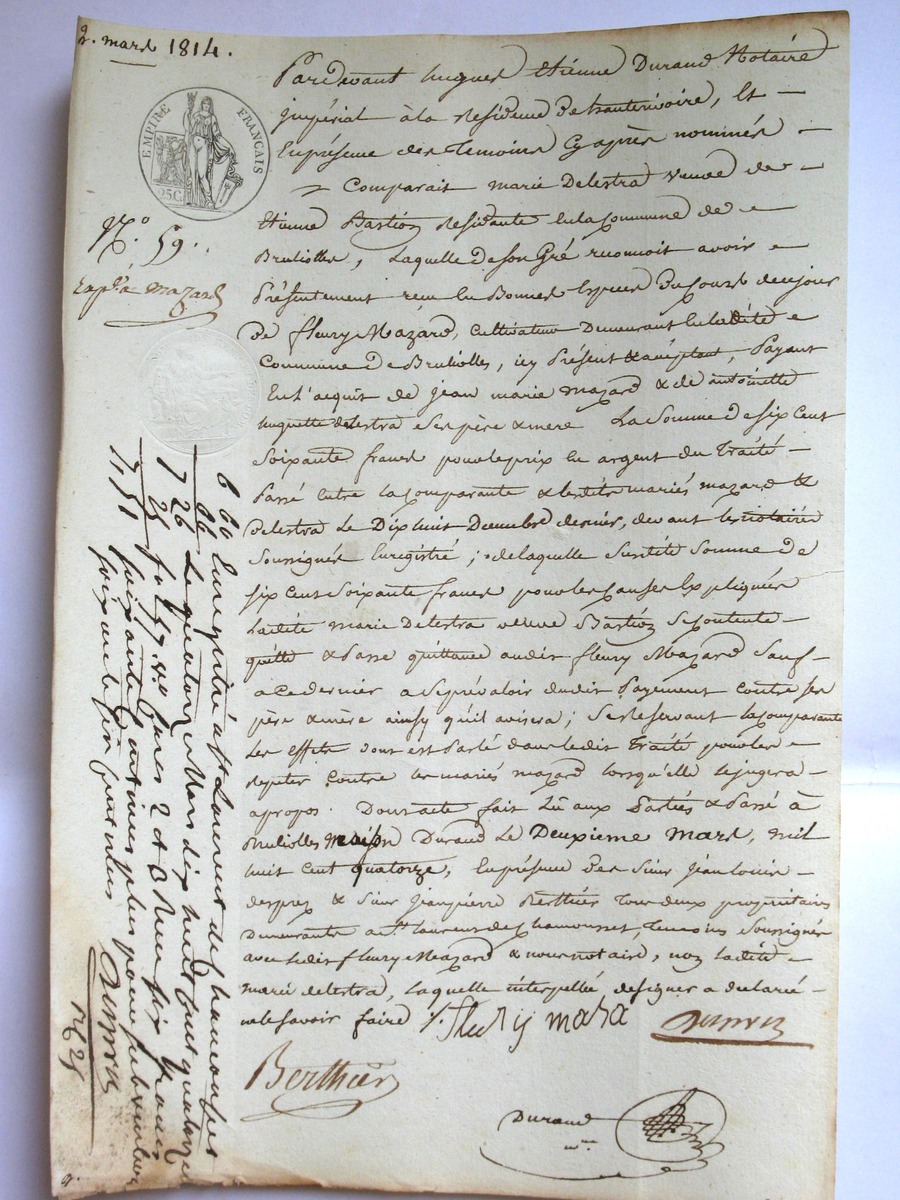 2. mars 1814.
EMPIRE FRANÇAIS
25 C.
N.o 59.
Exp.n a Mazard
Pardevant hugues Etienne Durand Notaire
impérial à la Residence de hauterivoire, Et
En présence des temoins Cy après nommés
Comparait marie Delestra veuve de
Etienne Bastion Residante En la Commune de
Bruliolles, Laquelle de son Gré reconnoit avoir
Présentement reçu En Bonnes Especes du Cours de ce jour
De fleury Mazard, Cultivateur Demeurant En la ditte
Commune De Bruliolles, icy Présent & acceptant, Payant
En L'acquit de jean marie mazard & de antoinette
huguette delestra Ses père & mere La Somme De Six Cent
Soixante francs pour le prix En argent du Traité
Passé Entre la Comparante & lesdits mariés mazard &
Delestra Le Dix huit Decembre dernier, devant le notaire
Soussigné Enregistré ; de laquelle Susditte Somme De
Six Cent Soixante francs pour les Causes Expliquées
Ladite Marie Delestra veuve Bastion Se Contente
quitte & Passe quittance audit fleury Mazard Sauf
a Ce dernier a Se prévaloir dudit Payement Contre Ses
père & mère ainsy qu'il avisera ; Se reservant la Comparante
Les Effets dont est Parlé dans ledit Traité pour les
repeter Contre les mariés mazard lorsqu'elle le jugera
apropos. Dont acte fait Lû aux Parties & Passé à
Brulioles maison Durand Le Deuxieme mars, mil
huit Cent quatorze, En présence Des Sieur Jean Louis
desprez & Sieur Jean pierre Berthier Tous deux propriétaires
Demeurants a St. laurent de Chamousset, Temoins Soussignés
avec ledit fleury Mazard & nous notaire, non ladite
marie delestra, Laquelle interpellée de signer a declaré
ne le Savoir faire
Fleury maza
Berthier
Durand
6 60 Enregistré a St Laurent de chamousset
66 Le quatorze Mars dix huit cent quatorze
7 26 fo 49 vo Cases 2 et 3 Reçu six francs
soixante centimes plus pour subvention
soixante six centimes